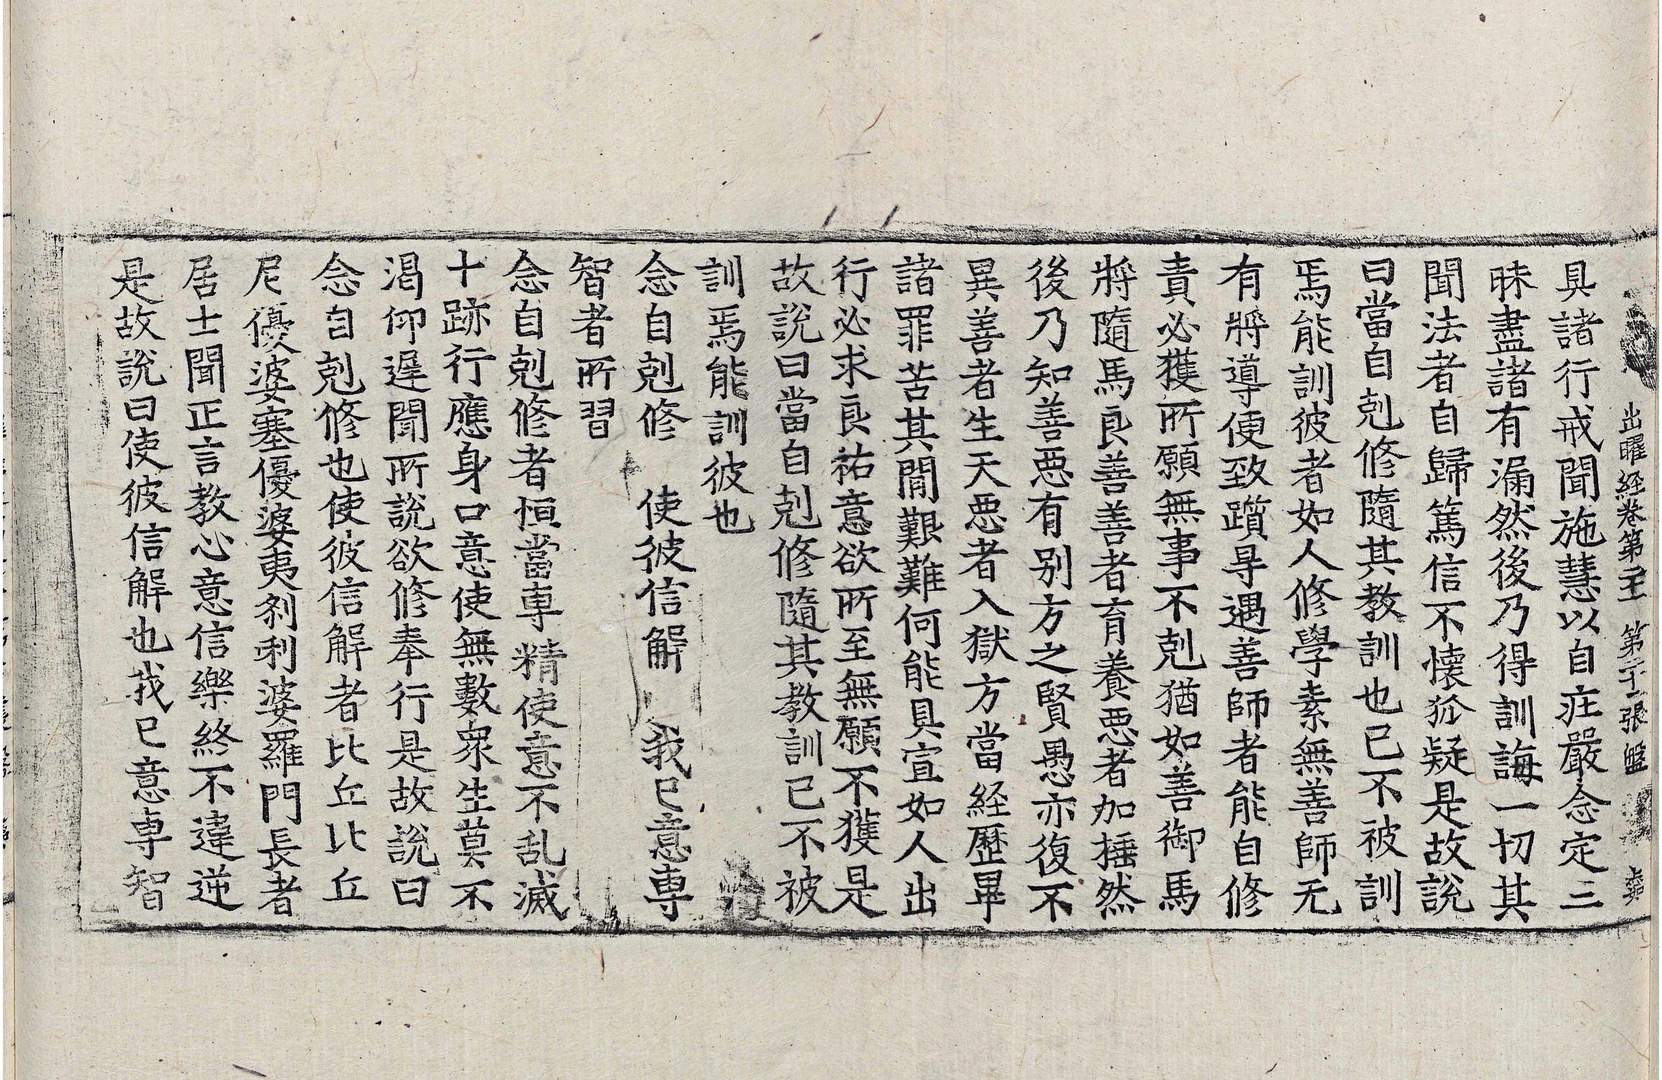 出曜経卷第 第二十二張 盤
具諸行戒聞施慧以自庄嚴念定三
昧盡諸有漏然後乃得訓誨一切其
聞法者自歸篤信不懷狐疑是故說
曰當自剋修隨其教訓也已不被訓
焉能訓彼者如人修學素無善師无
有將導便致躓㝵遇善師者能自修
責必獲所願無事不剋猶如善御馬
將隨馬良善善者育養悪者加捶然
後乃知善悪有别方之賢愚亦復不
異善者生天悪者入獄方當経歷畢
諸罪苦其閒艱難何能具宣如人出
行必求良祐意欲所至無願不獲是
故說曰當自剋修隨其教訓已不被
訓焉能訓彼也
念自剋修 使彼信解 我已意専
智者所習
念自剋修者恒當専精使意不乱滅
十跡行應身口意使無數衆生莫不
渴仰遅聞所說欲修奉行是故說曰
念自剋修也使彼信解者比丘比丘
尼優婆塞優婆夷刹利婆羅門長者
居士聞正言教心意信樂終不違逆
是故說曰使彼信解也我已意専智